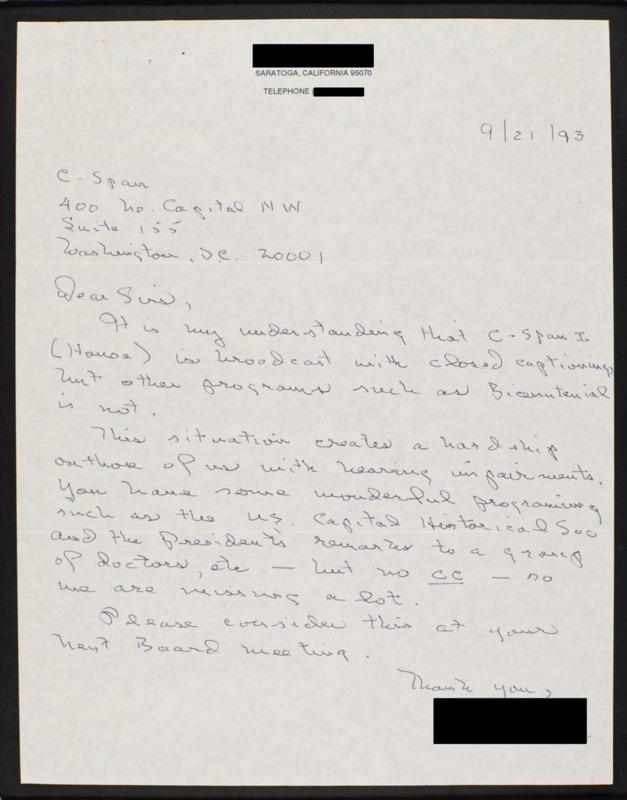 SARATOGA, CALIFORNIA 95070
TELEPHONE (
9/21/93
C-Span
400 No. Capital NW
Suite 155
Washington, D.C. 20001
Dear Sirs,
It is my understanding that C-Span I
(House) is broadcast with closed captionings
but other programs such as Bicentenial
is not.
This situation creates a hardship
on those of us with hearing impairments.
You have some wonderful programing
such as the US. Capital Historical Soc
and the President's remarks to a group
of doctors, etc — but no cc — so
we are missing a lot.
Please consider this at your
next Board meeting.
Thank you,